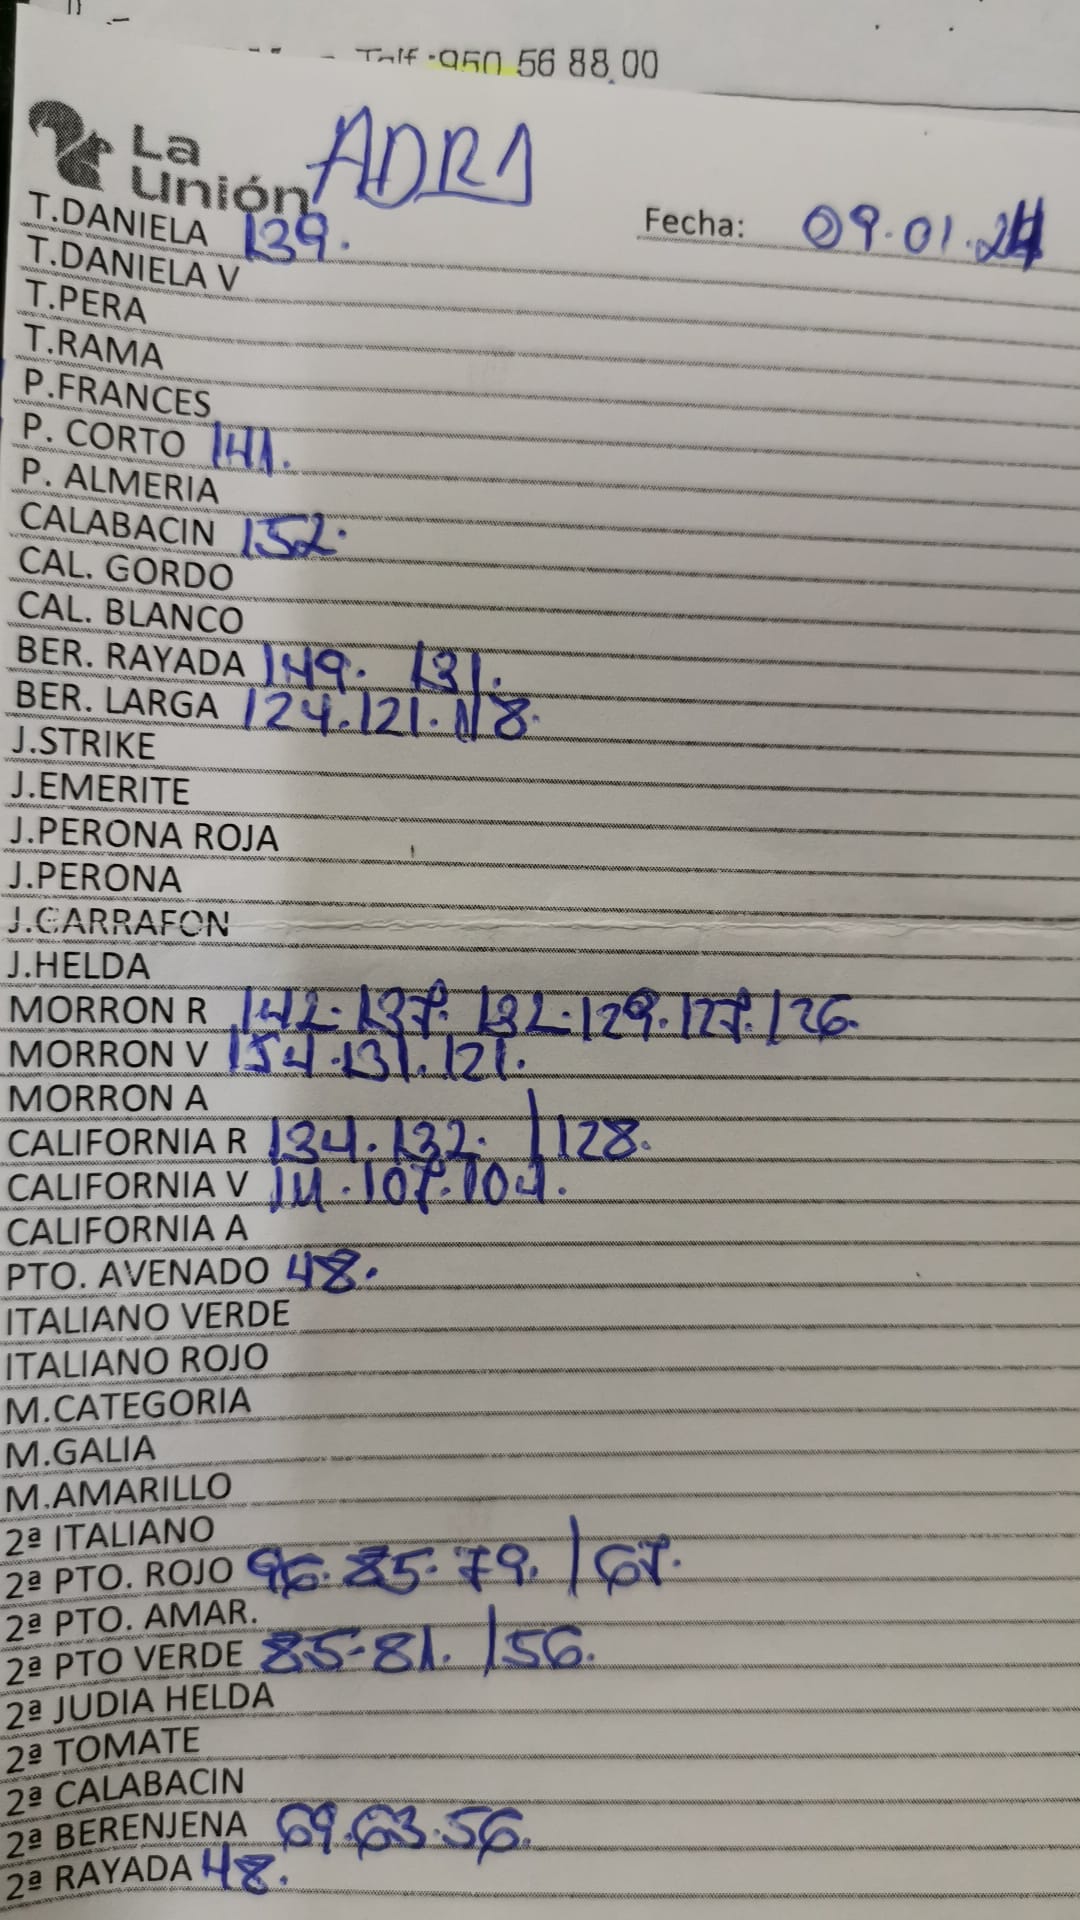 Telf.:950 56 88 00
La Unión ADRA
T.DANIELA 139. Fecha: 09.01.24
T.DANIELA V
T.PERA
T.RAMA
P.FRANCES
P. CORTO 141.
P. ALMERIA
CALABACIN 152.
CAL. GORDO
CAL. BLANCO
BER. RAYADA 149. 131.
BER. LARGA 124.121.118.
J.STRIKE
J.EMERITE
J.PERONA ROJA
J.PERONA
J.GARRAFON
J.HELDA
MORRON R 142.137. 132.129.127.126.
MORRON V 154.131.121.
MORRON A
CALIFORNIA R 134.132. / 128.
CALIFORNIA V 111.107.104.
CALIFORNIA A
PTO. AVENADO 48.
ITALIANO VERDE
ITALIANO ROJO
M.CATEGORIA
M.GALIA
M.AMARILLO
2ª ITALIANO
2ª PTO. ROJO 96.85.79. / 67.
2ª PTO. AMAR.
2ª PTO VERDE 85-81. / 56.
2ª JUDIA HELDA
2ª TOMATE
2ª CALABACIN
2ª BERENJENA 69.63.56.
2ª RAYADA 48.